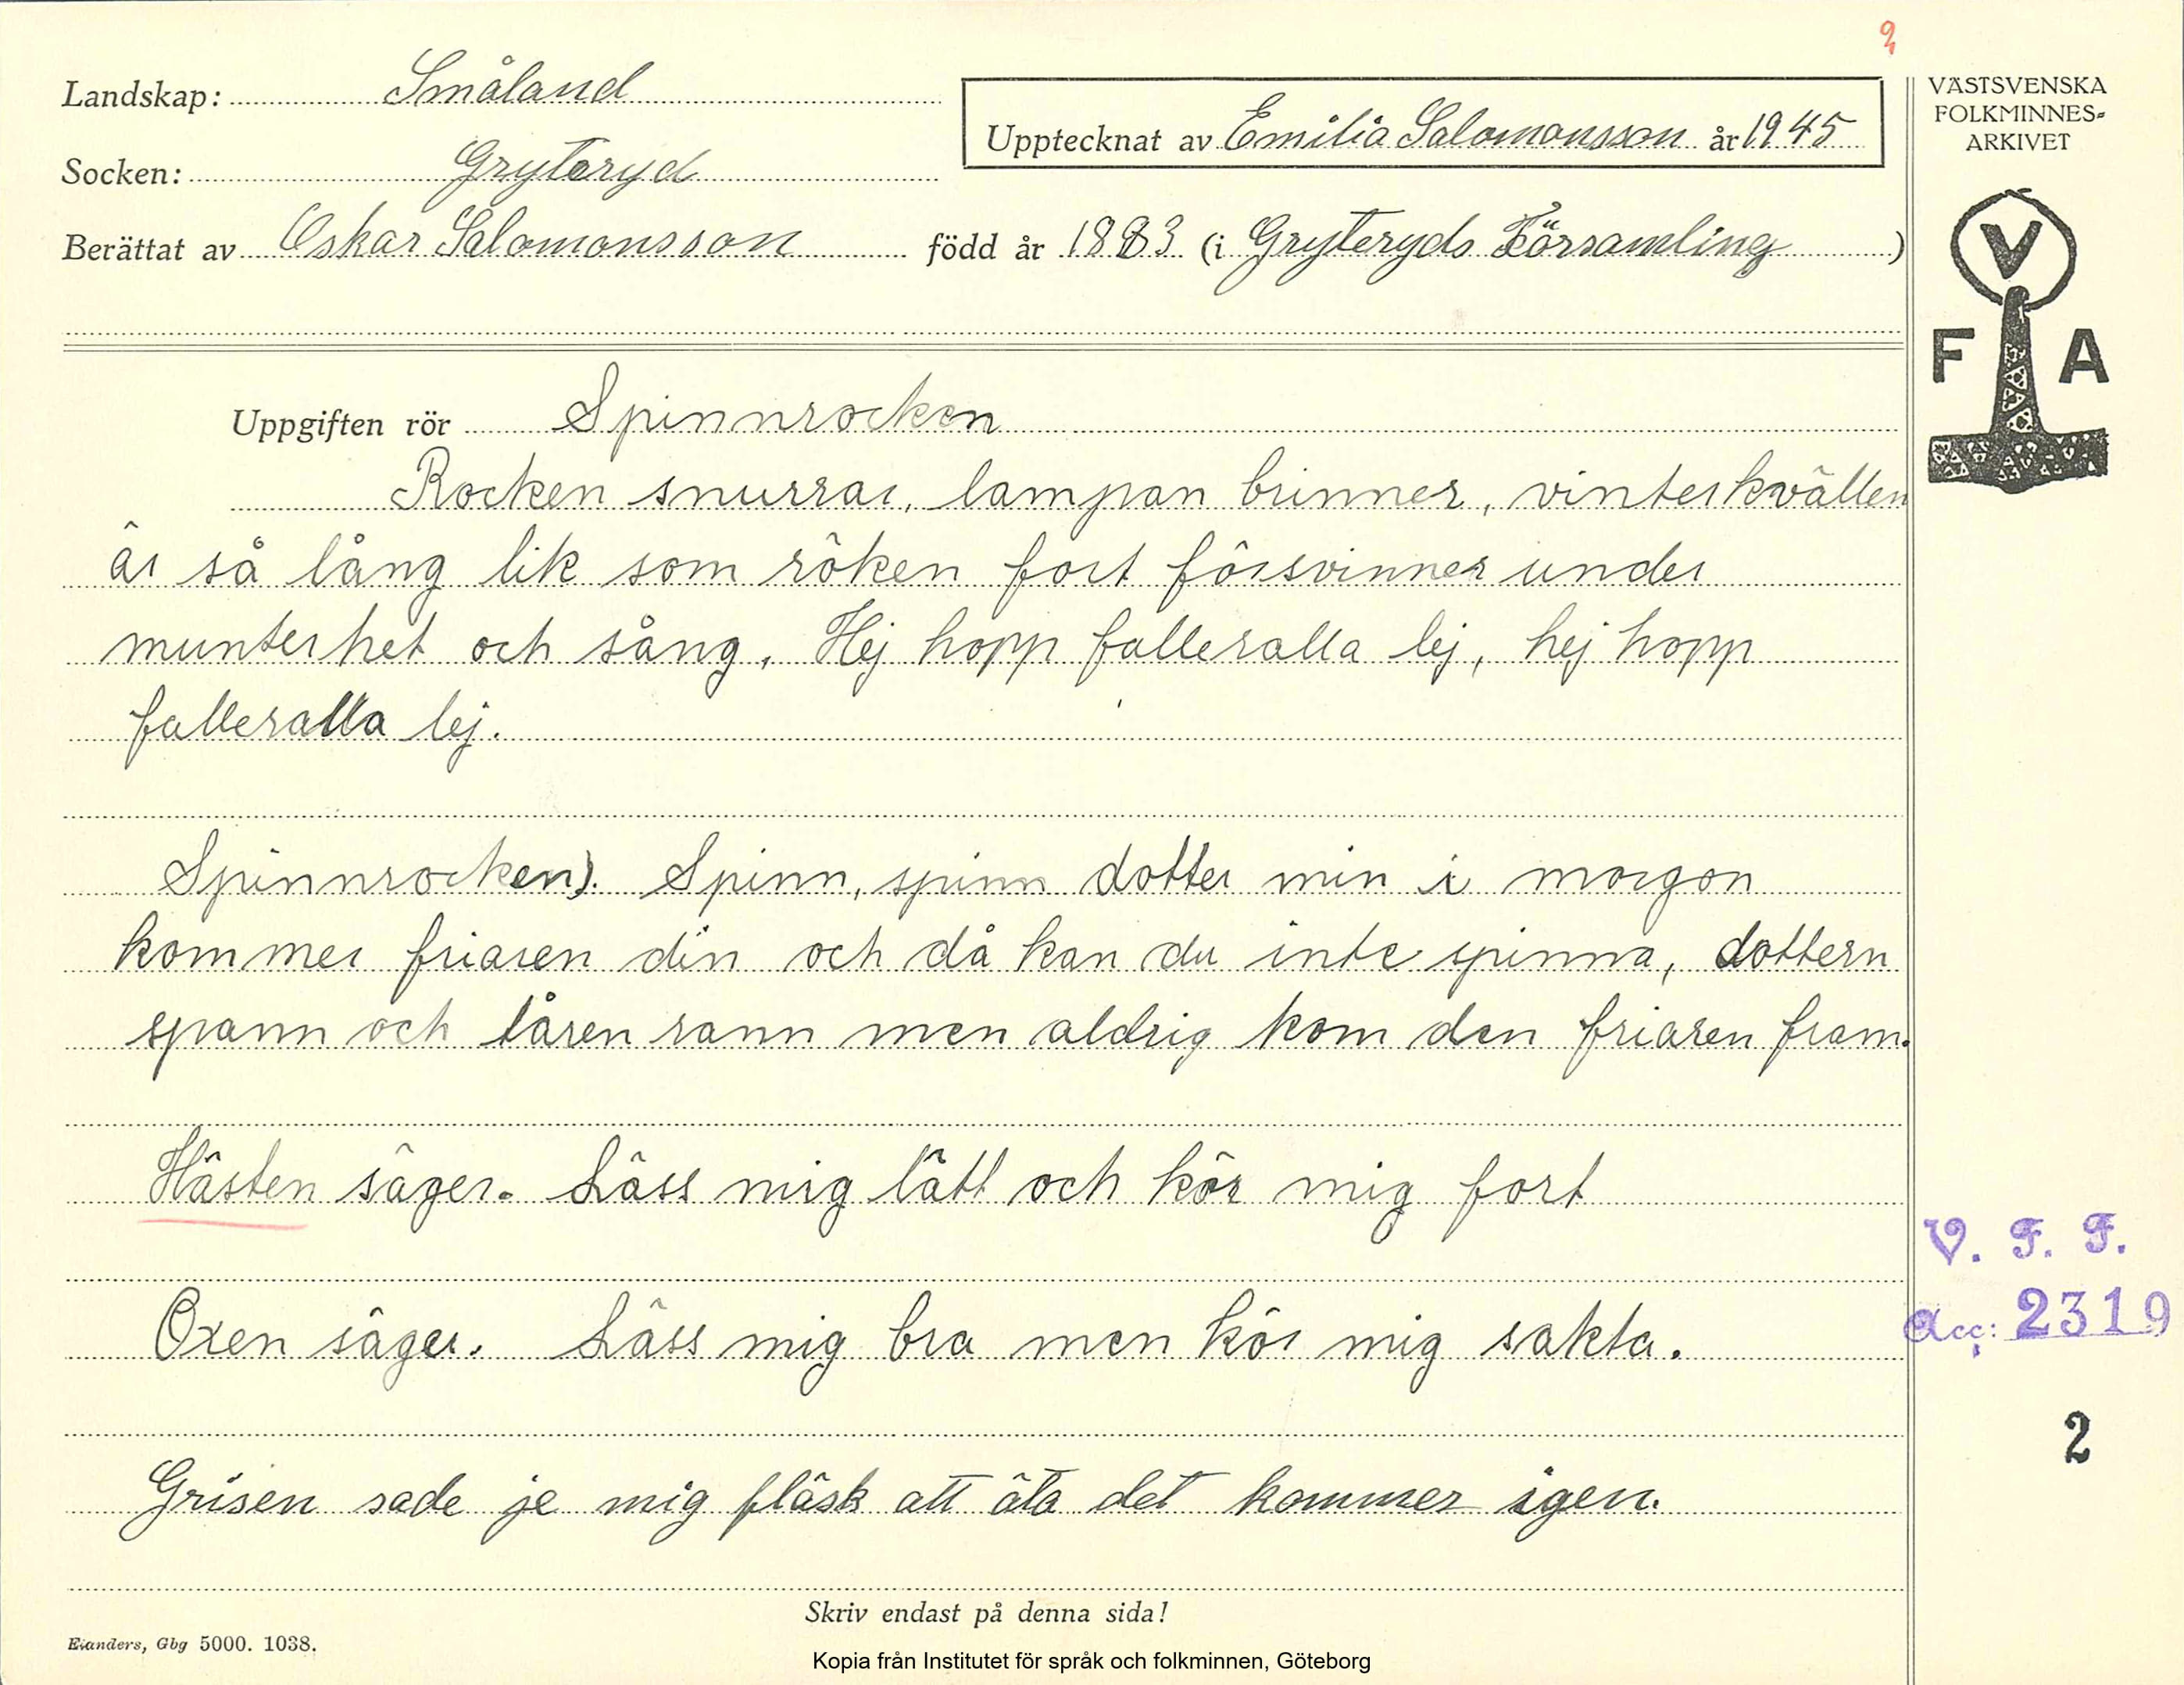 2
Landskap: Småland
Socken: Gryteryd
Upptecknat av Emilia Salomonsson år 1945
Berättat av Oskar Salomonsson född år 1883 (i Gryteryds Församling)
Uppgiften rör Spinnrocken
Rocken snurrar, lampan brinner, vinterkvällen
är så lång lik som röken fort försvinner under
munterhet och sång. Hej hopp falleralla lej, hej hopp
falleralla lej.
Spinnrocken). Spinn, spinn dotter min i morgon
kommer friaren din och då kan du inte spinna, dottern
spann och tåren rann men aldrig kom den friaren fram.
Hästen säger. Läss mig lätt och kör mig fort
Oxen säger. Läss mig bra men kör mig sakta.
Grisen sade je mig fläsk att äta det kommer igen.
Skriv endast på denna sida!
Elanders, Gbg 5000. 1038.
Kopia från Institutet för språk och folkminnen, Göteborg
VÄSTSVENSKA
FOLKMINNES-
ARKIVET
V
F A
V. F. F.
Acc: 2319
2